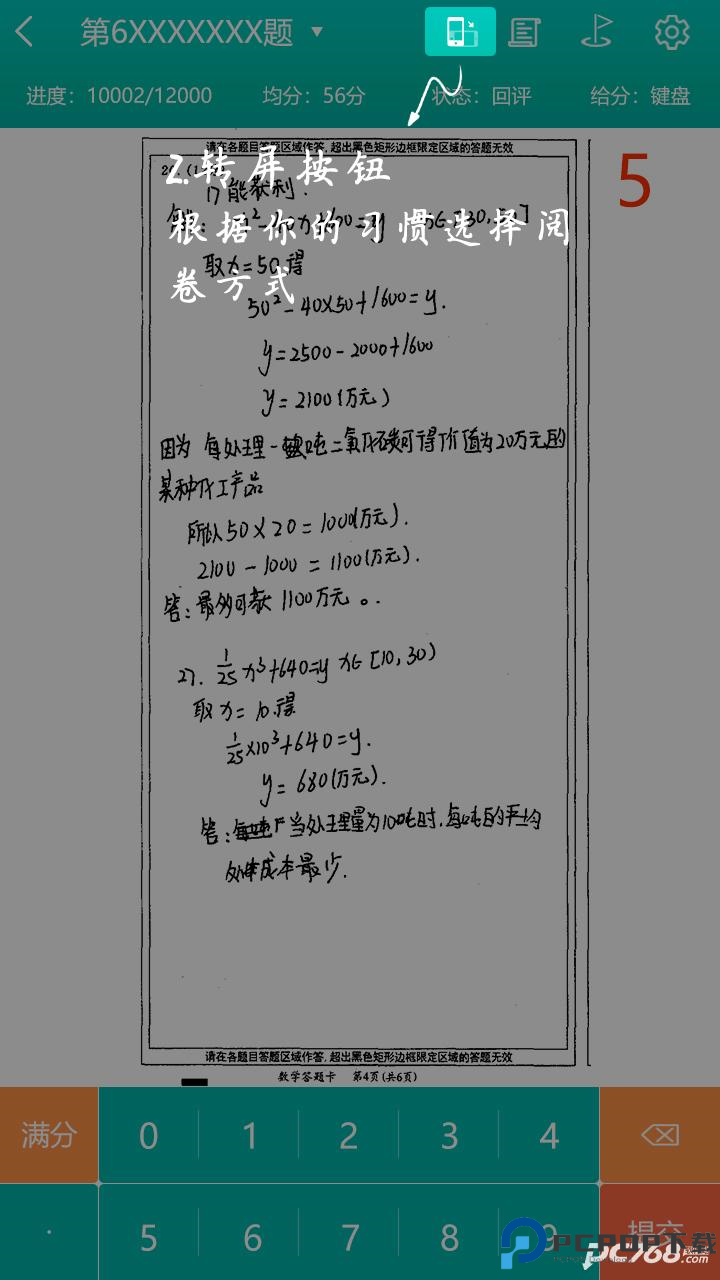 第6XXXXXXX题
进度：10002/12000 均分：56分 状态：回评 给分：键盘
请在各题目答题区域作答，超出黑色矩形边框限定区域的答题无效
5
2.转屏按钮
根据你的习惯选择阅
卷方式
门能获利.
取x=50.得
50²-40×50+1600=y.
y=2500-2000+1600
y=2100(万元)
因为 每处理一吨二氧化碳可得价值为20万元的
某种化工产品
所以50×20=1000(万元).
2100-1000=1100(万元).
答:最多可获 1100万元。.
27. 1/25 x³+640=y x∈[10,30)
取x=10.得
1/25×10³+640=y.
y=680(万元).
答:当处理量为10吨时.每吨的平均
处理成本最少.
请在各题目答题区域作答，超出黑色矩形边框限定区域的答题无效
数学答题卡 第4页(共6页)
满分 0 1 2 3 4
. 5 6 7 8 9 提交
PCPOP下载
pc768.com